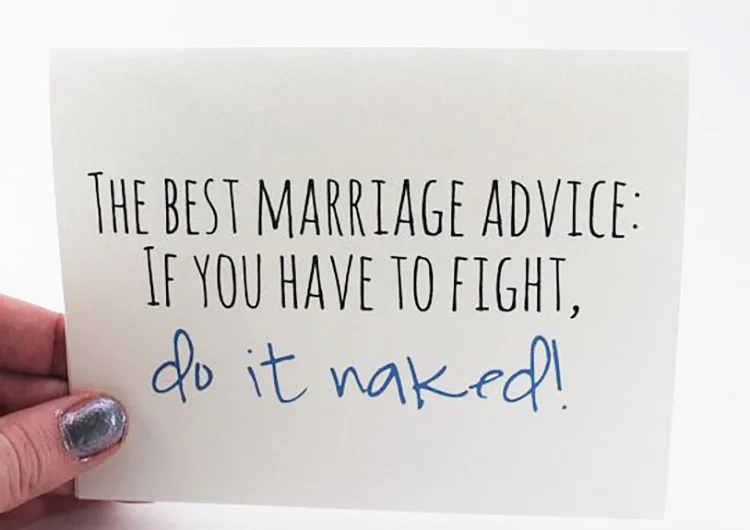 THE BEST MARRIAGE ADVICE:
IF YOU HAVE TO FIGHT,
do it naked!